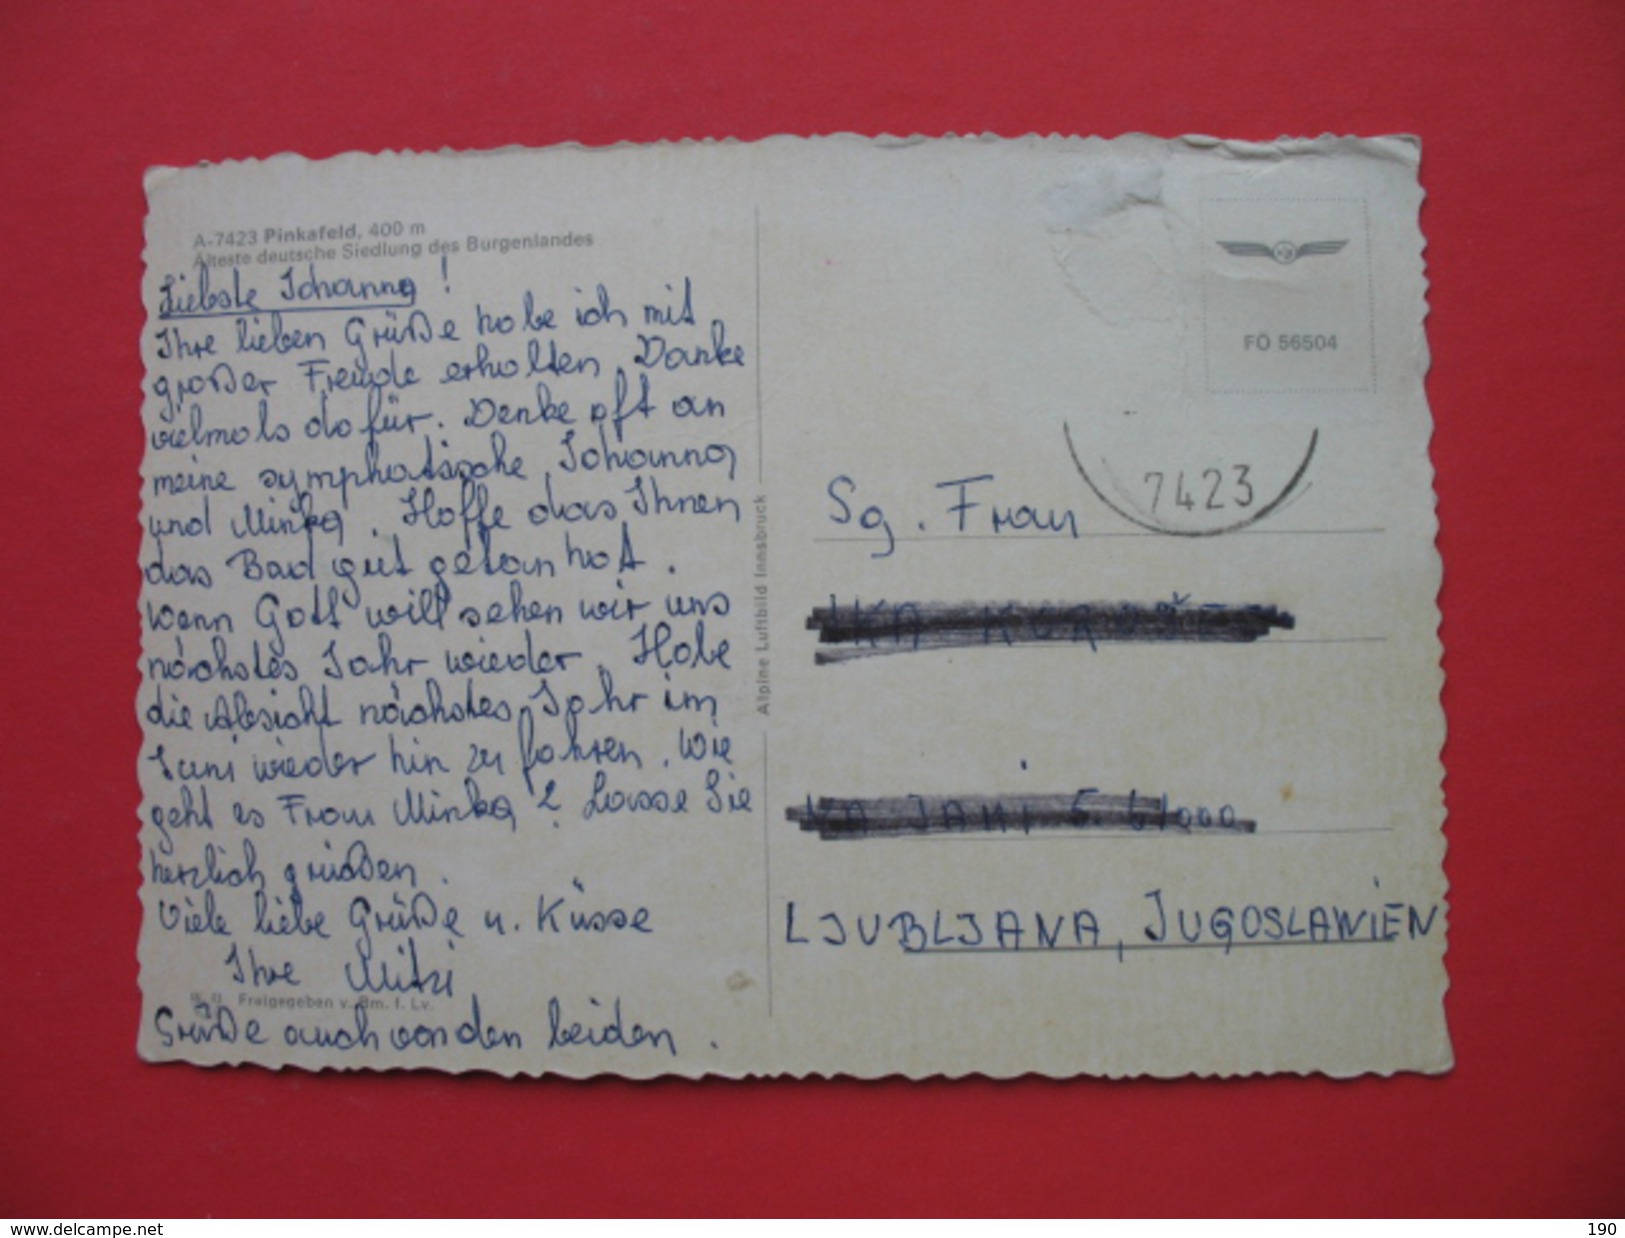 A-7423 Pinkafeld, 400 m
Älteste deutsche Siedlung des Burgenlandes
Liebste Johanna!
Ihre lieben Grüße habe ich mit
großer Freude erhalten. Danke
vielmals dafür. Denke oft an
meine symphatische Johanna
und Minka. Hoffe das Ihnen
das Bad gut getan hat.
Wenn Gott will sehen wir uns
nächstes Jahr wieder. Habe
die Absicht nächstes Jahr im
Juni wieder hin zu fahren. Wie
geht es Frau Minka? Lasse Sie
herzlich grüßen.
Viele liebe Grüße u. Küsse
Ihre Mitzi
Freigegeben v. Bm. f. Lv.
Grüße auch von den beiden.
Alpine Luftbild Innsbruck
FÖ 56504
7423
Sg. Frau
LJUBLJANA, JUGOSLAWIEN
www.delcampe.net
190